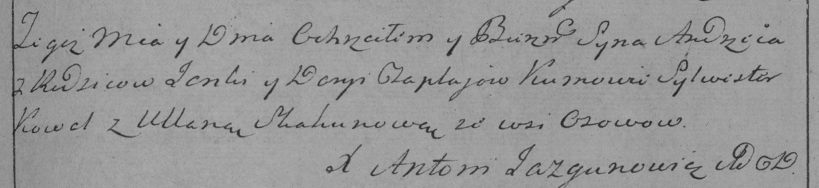 Tegoż Mca y Dnia Ochrzciłem y Bierzm Syna Andrzeia
z Rodzicow Jaśki y Daryi Czaplajow Kumowie Sylwester
Kowel z Ullaną Skakunową ze wsi Osowow.
X Antoni Jazgunowicz